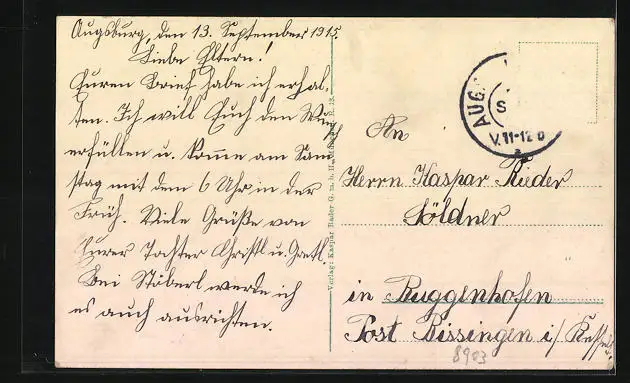 Augsburg, den 13. September 1915.
Liebe Eltern!
Euren Brief habe ich erhal-
ten. Ich will Euch den Wunsch
erfüllen u. komme am Sams
stag mit dem 6 Uhr in der
Früh. Viele Grüße von
Eurer Tochter Christl u. Gretl.
Bei Stöberl werde ich
es auch ausrichten.
Verlag: Kaspar Bader G. m. b. H.
AUG
S
V. 11-12
An
Herrn Kaspar Rieder
Söldner
in Buggenhofen
Post Bissingen i/ Kessel
8903